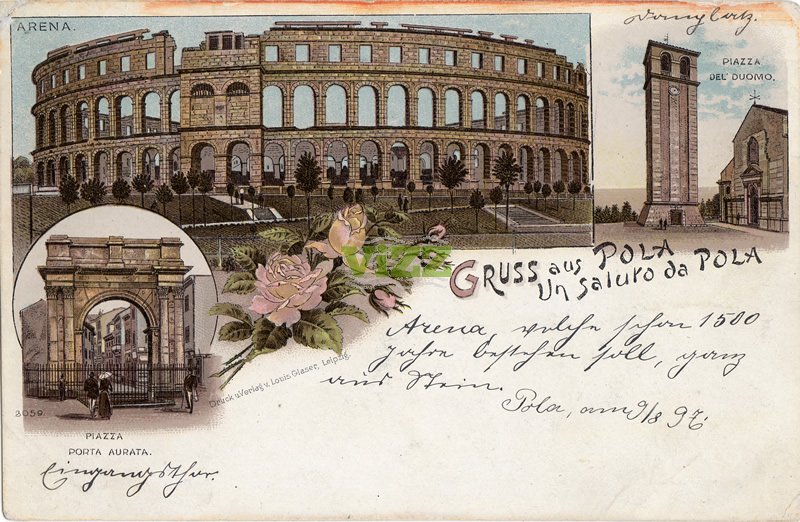 ARENA.
Domplatz.
PIAZZA
DEL DUOMO.
VIZZ
GRUSS aus POLA
Un Saluto da POLA
Arena, welche schon 1500
Jahre bestehen soll, ganz
aus Stein.
Pola, am 9/8 97.
Druck u Verlag v. Louis Glaser, Leipzig.
3059
PIAZZA
PORTA AURATA.
Eingangsthor.